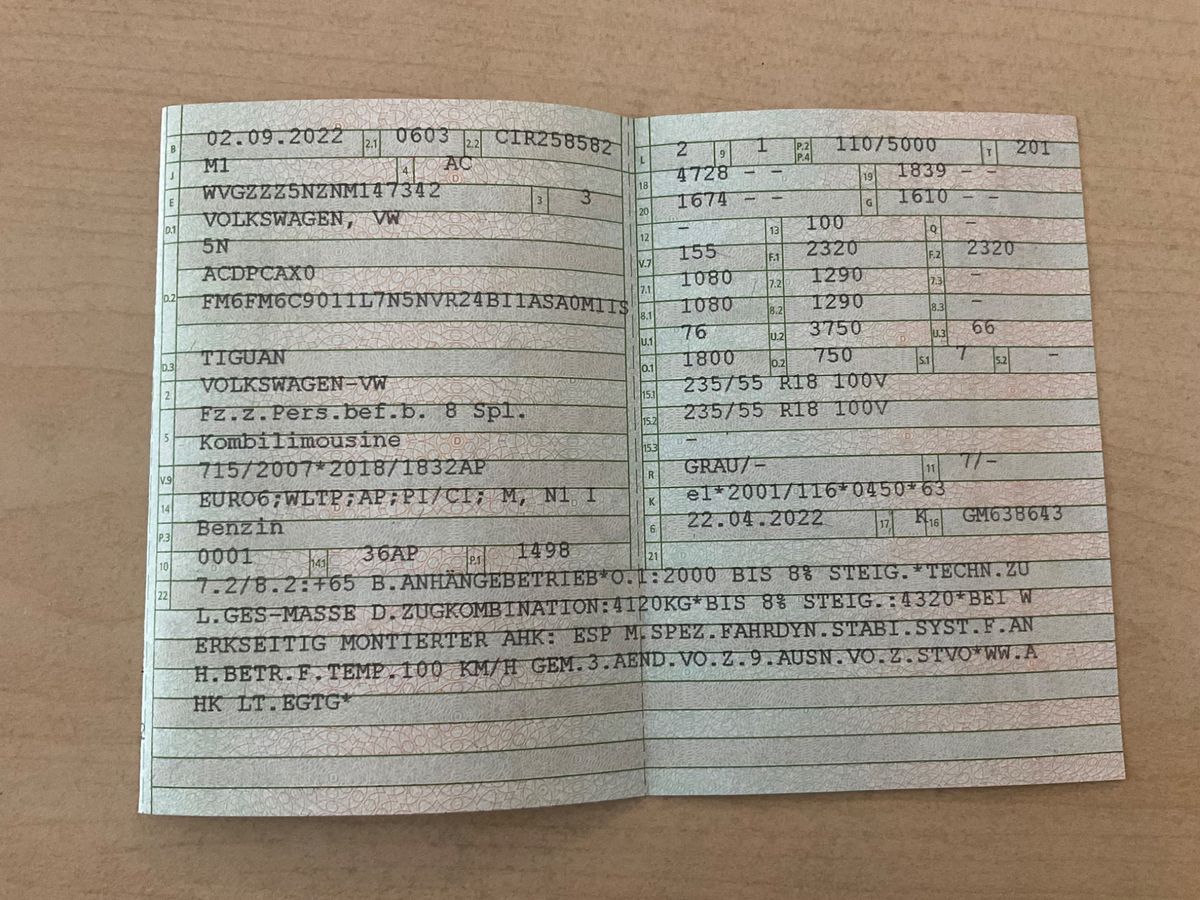 B 02.09.2022 2.1 0603 2.2 CIR258582
J M1 4 AC
E WVGZZZ5NZNM147342 3 3
D.1 VOLKSWAGEN, VW
5N
ACDPCAX0
D.2 FM6FM6C9011L7N5NVR24BI1ASA0M1IS
D.3 TIGUAN
2 VOLKSWAGEN-VW
Fz.z.Pers.bef.b. 8 Spl.
5 Kombilimousine
V.9 715/2007*2018/1832AP
14 EURO6;WLTP;AP;PI/CI; M, N1 I
P.3 Benzin
10 0001 14.1 36AP P.1 1498
L 2 9 1 P.2 P.4 110/5000 T 201
18 4728 - - 19 1839 - -
20 1674 - - G 1610 - -
12 - 13 100 Q -
V.7 155 F.1 2320 F.2 2320
7.1 1080 7.2 1290 7.3 -
8.1 1080 8.2 1290 8.3 -
U.1 76 U.2 3750 U.3 66
O.1 1800 O.2 750 S.1 7 S.2 -
15.1 235/55 R18 100V
15.2 235/55 R18 100V
15.3 -
R GRAU/- 11 7/-
K e1*2001/116*0450*63
6 22.04.2022 17 K 16 GM638643
21
22 7.2/8.2:+65 B.ANHÄNGEBETRIEB*O.1:2000 BIS 8% STEIG.*TECHN.ZU
L.GES-MASSE D.ZUGKOMBINATION:4120KG*BIS 8% STEIG.:4320*BEI W
ERKSEITIG MONTIERTER AHK: ESP M.SPEZ.FAHRDYN.STABI.SYST.F.AN
H.BETR.F.TEMP.100 KM/H GEM.3.AEND.VO.Z.9.AUSN.VO.Z.STVO*WW.A
HK LT.EGTG*